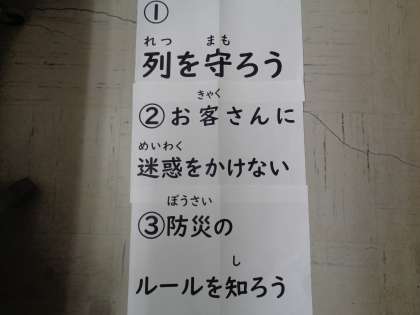 ①
れつ まも
列を守ろう
きゃく
②お客さんに
めいわく
迷惑をかけない
ぼうさい
③防災の
し
ルールを知ろう